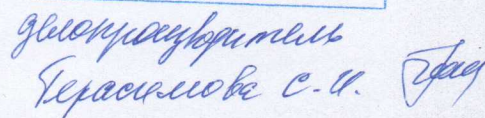 делопроизводитель
Герасимова С.И.